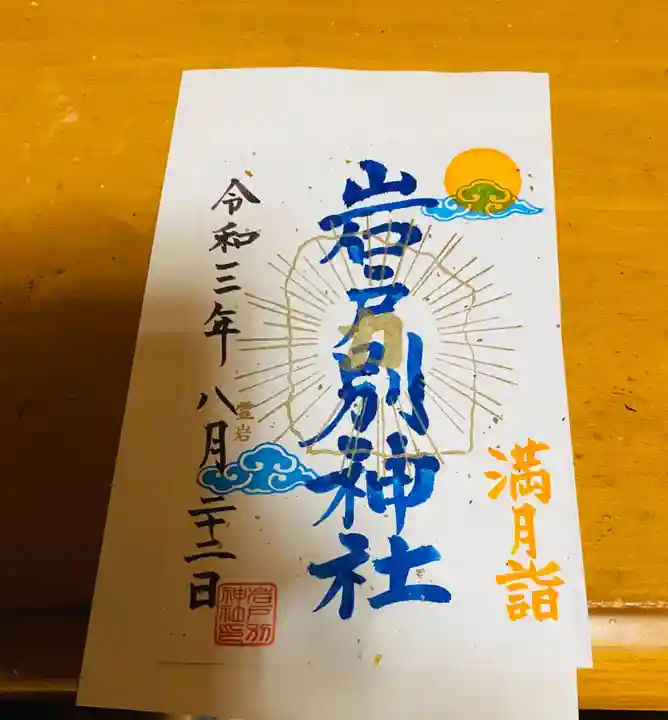 満月詣
岩戸別神社
霊岩
令和三年八月二十二日
岩戸別
神社印